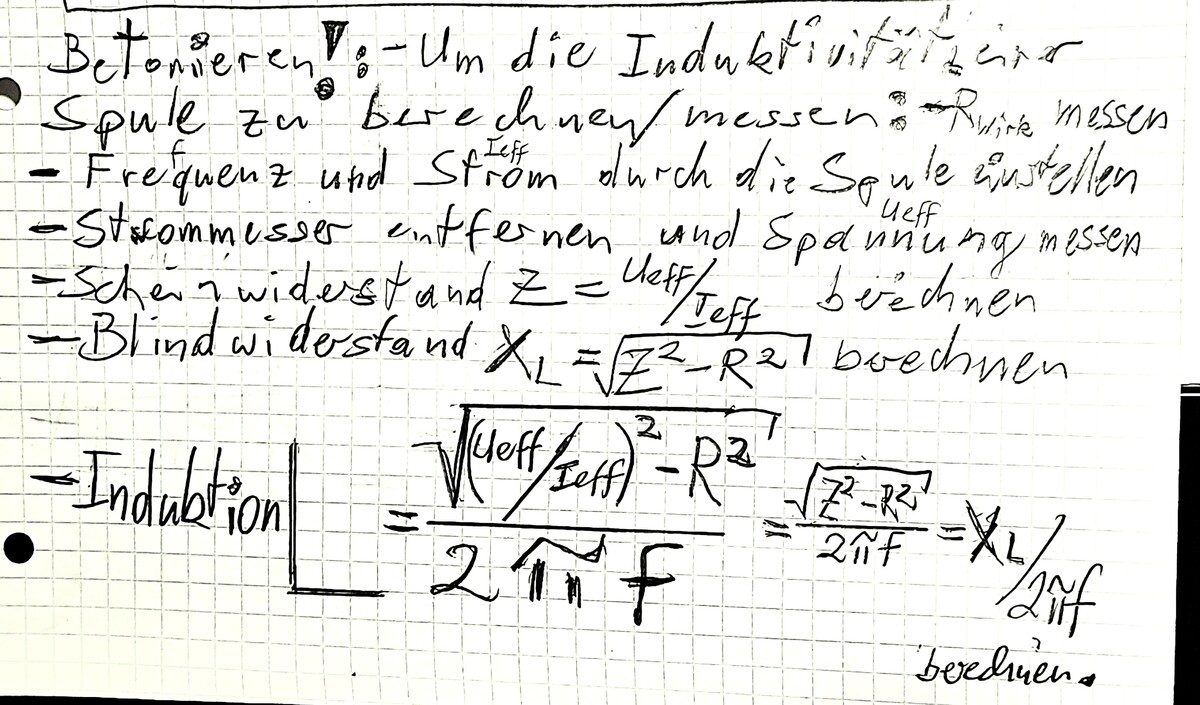 Betonieren!: - Um die Induktivität einer
Spule zu berechnen/messen: - R_Wirk messen
- Frequenz f und Strom Ieff durch die Spule einstellen
- Strommesser entfernen und Spannung Ueff messen
- Scheinwiderstand Z = Ueff/Ieff berechnen
- Blindwiderstand X_L = √(Z² - R²) berechnen
- Induktion L = √((Ueff/Ieff)² - R²) / 2πf = √(Z² - R²) / 2πf = X_L/2πf
berechnen.